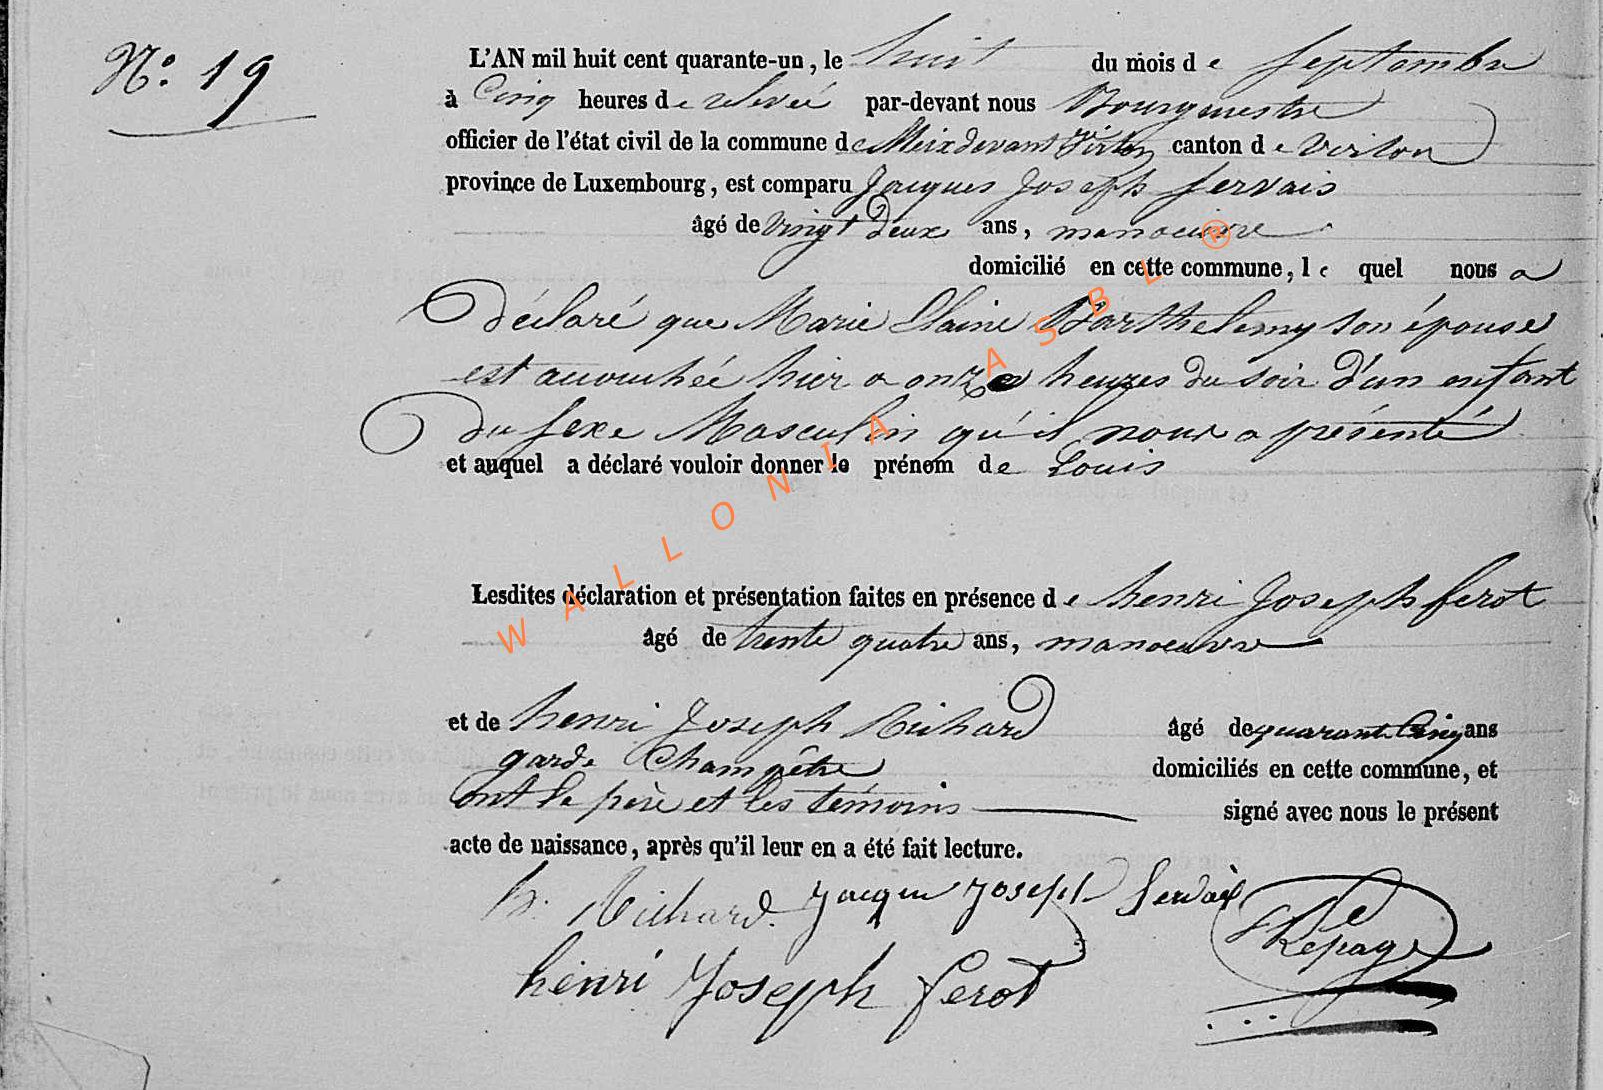 N° 19
L'AN mil huit cent quarante-un, le huit du mois de Septembre
à Cinq heures de relevée par-devant nous Bourgmestre
officier de l'état civil de la commune de Meix devant Virton canton de Virton
province de Luxembourg, est comparu Jacques Joseph Servais
âgé de vingt deux ans, manoeuvre
domicilié en cette commune, le quel nous a
déclaré que Marie Barthelemy son épouse
est accouchée hier a onze heures du soir d'un enfant
du sexe Masculin qu'il nous a présenté
et auquel a déclaré vouloir donner le prénom de Louis
Lesdites déclaration et présentation faites en présence de henri Joseph ferot
âgé de trente quatre ans, manoeuvre
et de henri Joseph Richard âgé de quarante Cinq ans
garde Champêtre domiciliés en cette commune, et
ont le père et les témoins signé avec nous le présent
acte de naissance, après qu'il leur en a été fait lecture.
h. Richard. Jacque Joseph Servais
Lepage
henri Joseph ferot
WALLONIA ASBL ®